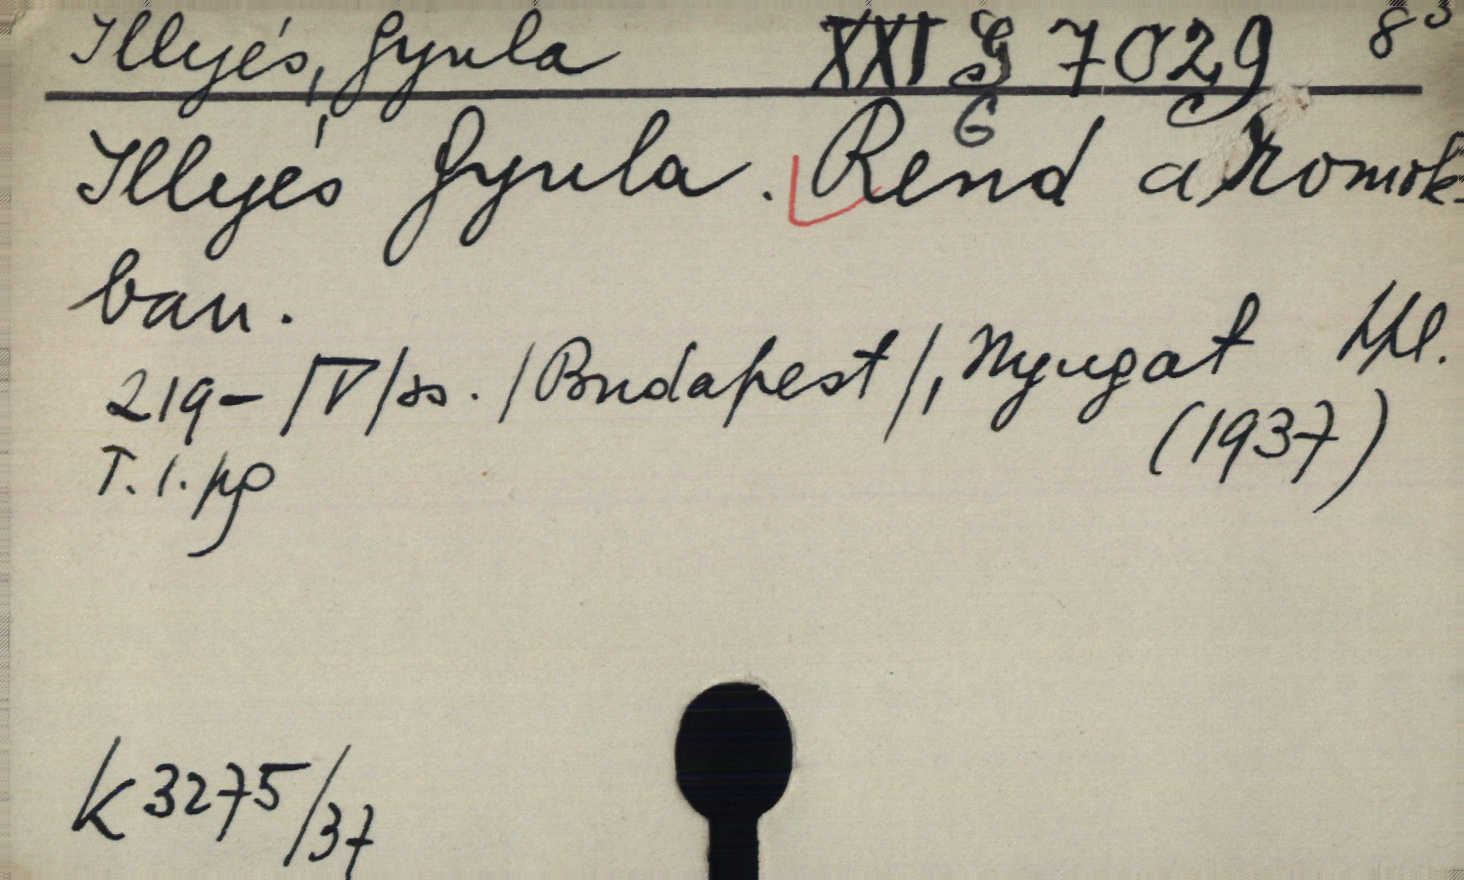 Illyés, Gyula XXI G 7029 8°
G
Illyés Gyula. Rend a romok-
ban.
219- /V/ ss. /Budapest/, Nyugat
(1937)
T. 1. pg
K 3275/37